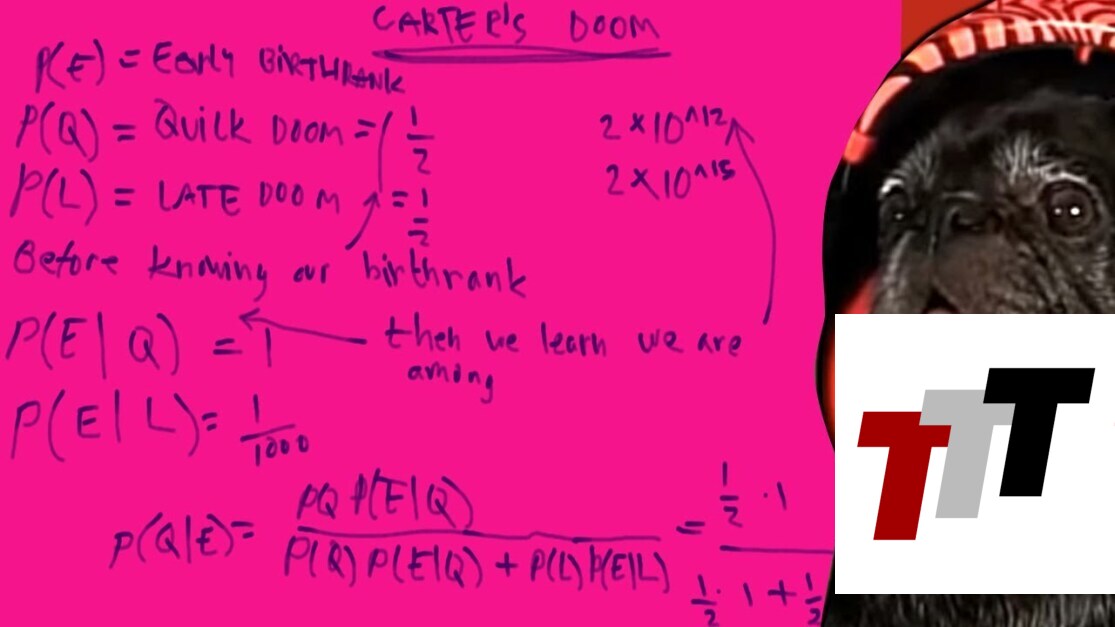 CARTER'S DOOM
P(E) = Early BIRTHRANK
P(Q) = QUICK DOOM = 1/2
2 × 10^12
P(L) = LATE DOOM = 1/2
2 × 10^15
Before knowing our birthrank
P(E | Q) = 1
then we learn we are
among
P(E | L) = 1/1000
P(Q|E) = PQ P(E|Q) / P(Q) P(E|Q) + P(L) P(E|L) = 1/2 · 1 / 1/2 · 1 + 1/2
TTT